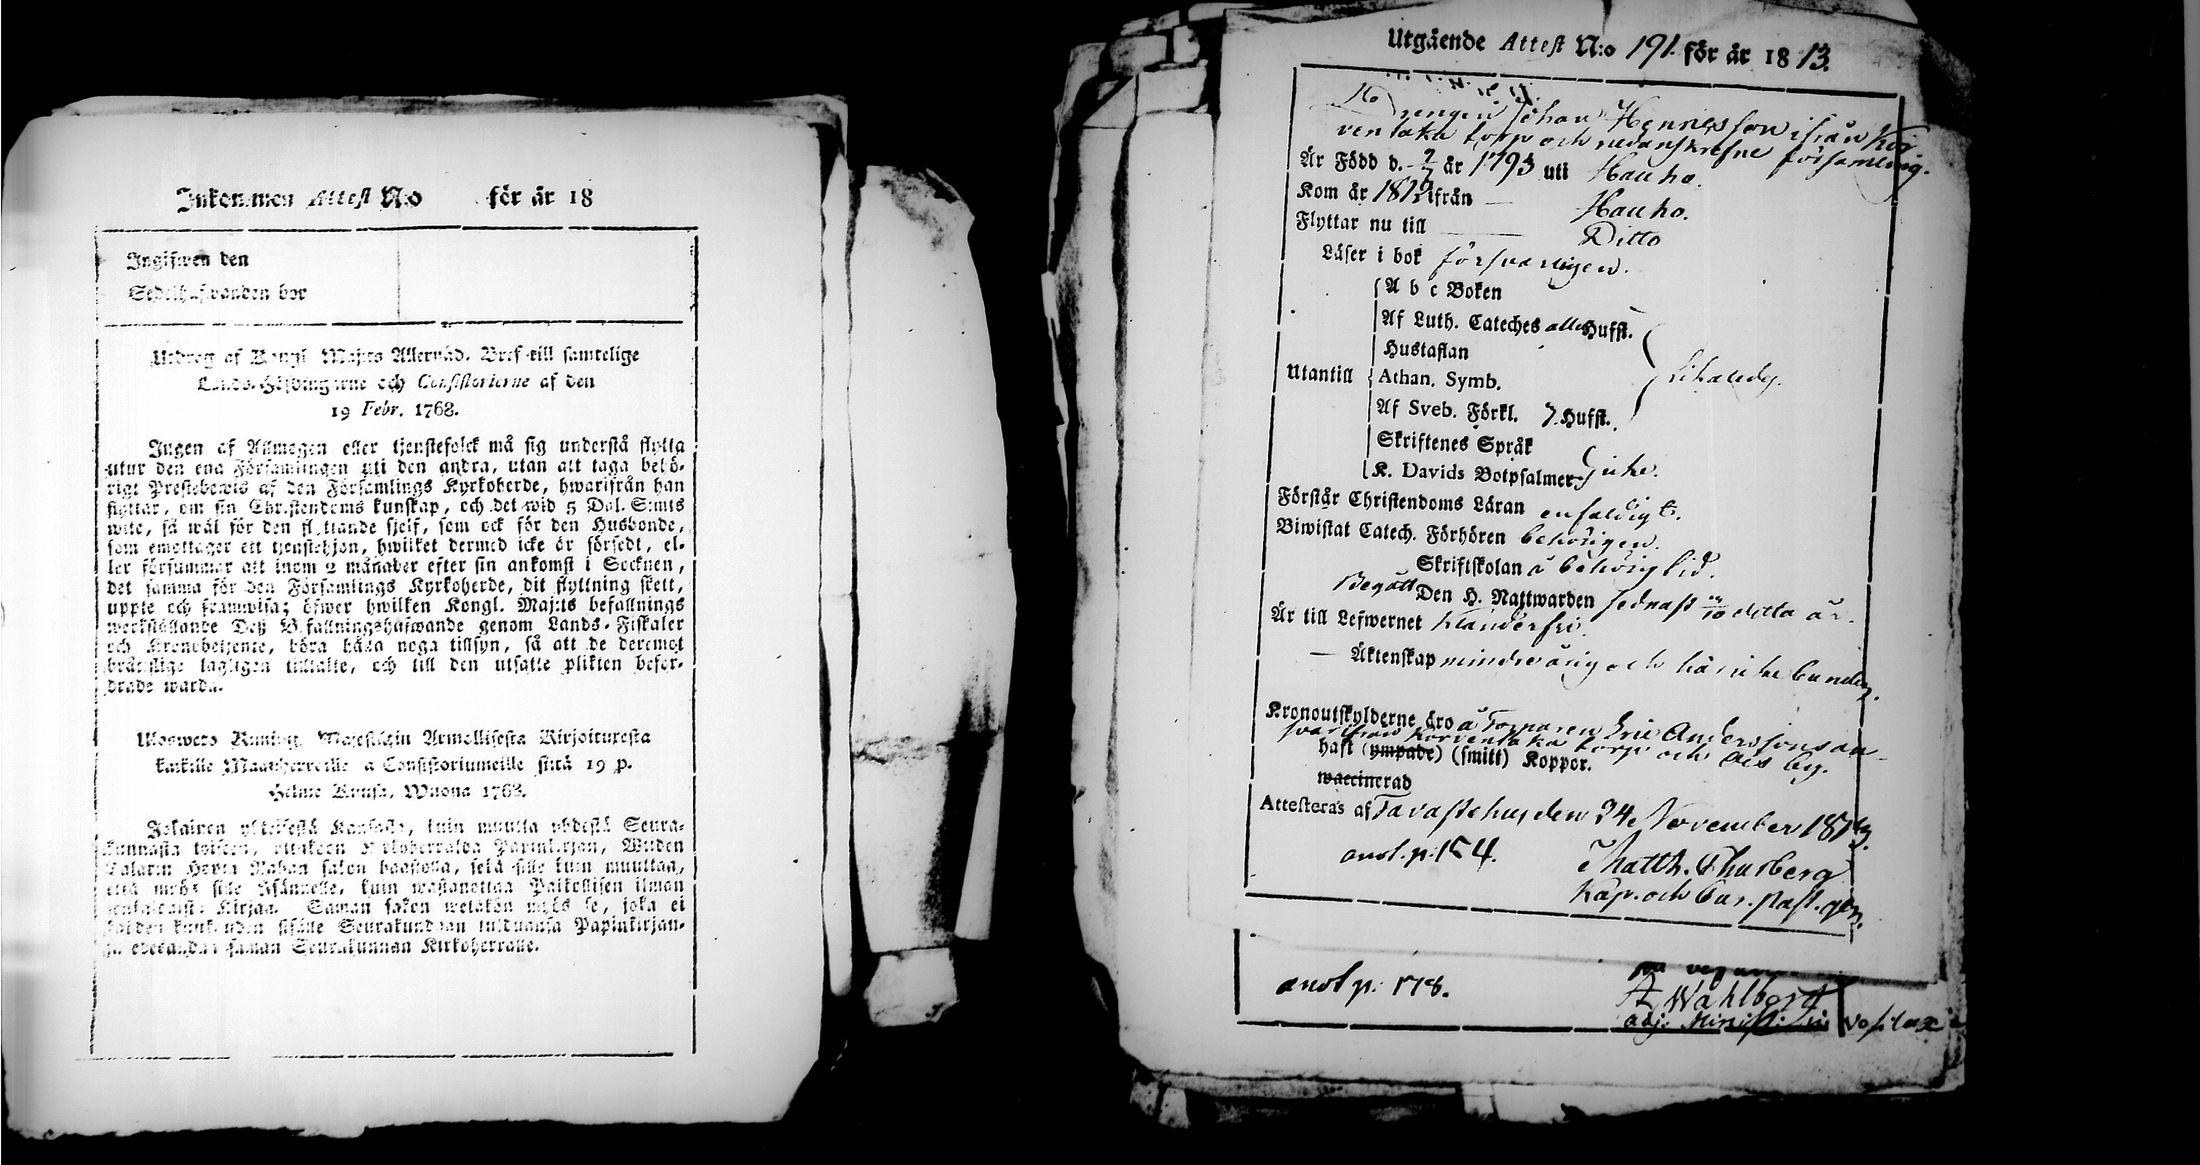 Inkommen Attest N:o för år 18
Ingifwen den
Sedelhafwanden bor
Utdrag af Kongl. Maj:ts Allernåd. Bref till samtelige
Lands-Höfdingarne och Consistorierne af den
19 Febr. 1768.
Ingen af Allmogen eller tjenstefolck må sig understå flytta
utur den ena Församlingen uti den andra, utan att taga behö-
rigt Prestebewis af den Församlings Kyrkoherde, hwarifrån han
flyttar, om sin Christendoms kunskap, och det wid 5 Dal. S:mts
wite, så wäl för den flyttande sjelf, som ock för den Husbonde,
som emottager ett tjenstehjon, hwilket dermed icke är försedt, el-
ler försummar att inom 2 månader efter sin ankomst i Socknen,
det samma för den Församlings Kyrkoherde, dit flyttning skett,
uppte och framwisa; öfwer hwilken Kongl. Maj:ts befallnings
werkställande Deß Befallningshafwande genom Lands-Fiskaler
och Kronobetjente, böra hafa noga tillsyn, så att de deremot
brättslige lagligen tilltalte, och till den utsatte plikten befor-
drade warda.
Ulosweto Kuning. Majestetin Armollisesta Kirjoituresta
kaikille Maanherroille ja Consistoriumeille siitä 19 p.
Helme Kuusa, Wuona 1768.
Jokainen yhteisestä Kansasta, kuin muutta yhdestä Seura-
kunnasta toiseen, ottakoon Kirkoherralda Papinkirjan, Wiiden
Talarin Hopia Rahan sakon haastolla, sekä sille kuin muuttaa,
että myös sille Isännelle, kuin wastanottaa Palkollisen ilman
senkaltaista Kirjaa. Saman sakon wetäkön myös se, joka ei
kahden kuukauden sisälle Seurakundaan tulduansa Papinkirjan-
sa edesanna saman Seurakunnan Kirkoherralle.
Utgående Attest N:o 191. för år 1813.
Drengen Johan Hennesson ifrån Kor
ventaka torp och nedanskrefne församling.
Är Född d. 7/7 år 1793 uti Hauho.
Kom år 1812 ifrån — Hauho.
Flyttar nu till — Ditto
Läser i bok försvarligen.
A b c Boken
Af Luth. Cateches alla Hufst.
Hustaflan
Utantill Athan. Symb.
Af Sveb. Förkl. 7. Hufst.
Skriftenes Språk
K. Davids Botpsalmer icke.
Förstår Christendoms Läran enfaldigt.
Biwistat Catech. Förhören behörigen.
Skriftskolan å behörig tid.
Begått Den H. Nattwarden sednast 10 ditto år.
Är till Lefwernet klanderfri.
— Äktenskap minderårig och här icke bunden.
Kronoutskylderne äro å Torparen Eric Anderssons an
svar ifrån Korventaka torp och Ois by.
haft (ympade) (smitt) Koppor.
waccinerad
Attesteras af Tavastehus den 24 November 1813.
anot. p. 154.
Matth. Thusberg
Kap. och Cur. past. gen.
anot p: 178.
A Wahlberg
adj: Minist: in Vosilax